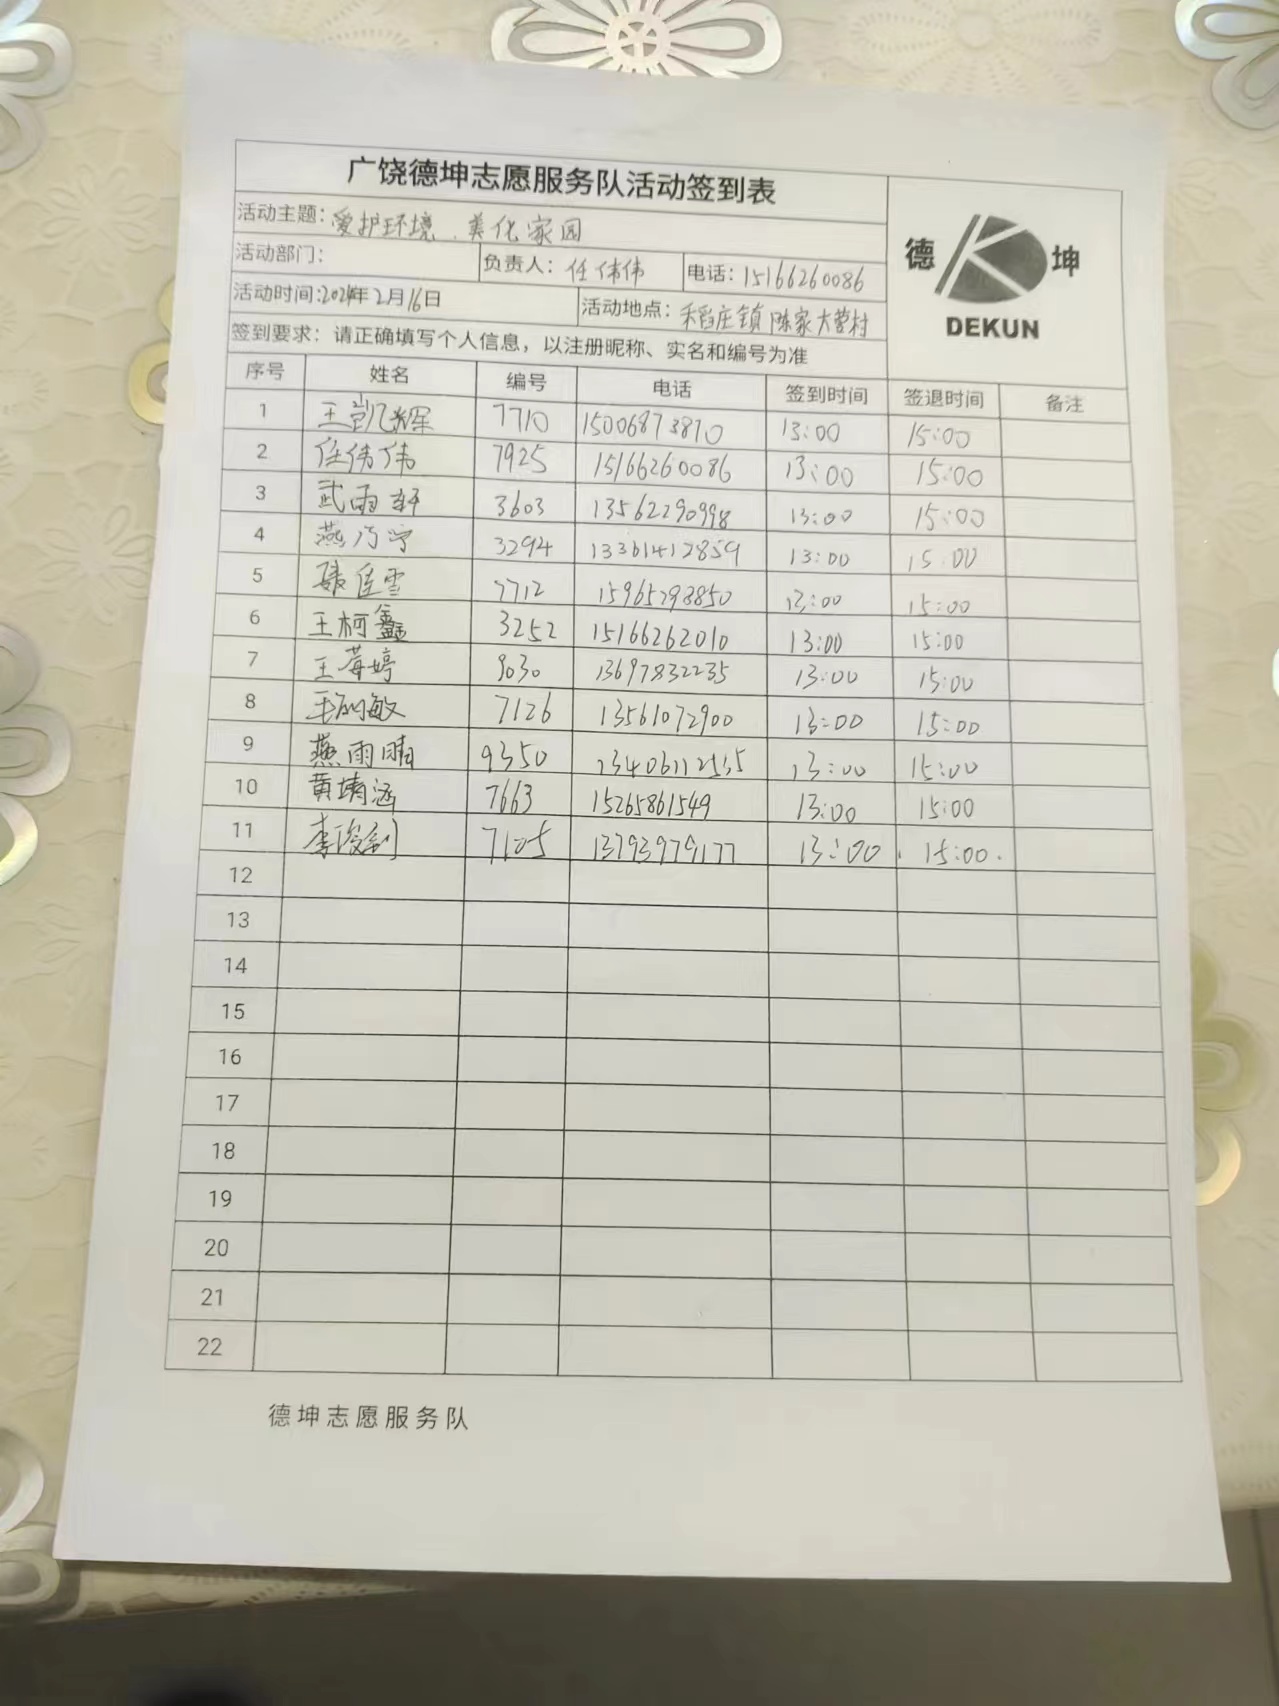 广饶德坤志愿服务队活动签到表
活动主题：爱护环境、美化家园
活动部门： 负责人：任伟伟 电话：15166260086
德 坤
DEKUN
活动时间：2024年2月16日 活动地点：稻庄镇陈家大营村
签到要求：请正确填写个人信息，以注册昵称、实名和编号为准
序号 姓名 编号 电话 签到时间 签退时间 备注
1 王凯辉 7710 15006873870 13:00 15:00
2 任伟伟 7925 15166260086 13:00 15:00
3 武雨轩 3603 13562290998 13:00 15:00
4 燕乃宁 3294 13361412859 13:00 15:00
5 佳雪 7712 15965298850 13:00 15:00
6 王柯鑫 3252 15166262010 13:00 15:00
7 王莓婷 9030 13697832235 13:00 15:00
8 敏 7126 13561072900 13:00 15:00
9 燕雨晴 9350 13:00 15:00
10 黄靖涵 7663 15265861549 13:00 15:00
11 李俊 7105 13793979177 13:00 15:00.
12
13
14
15
16
17
18
19
20
21
22
德坤志愿服务队